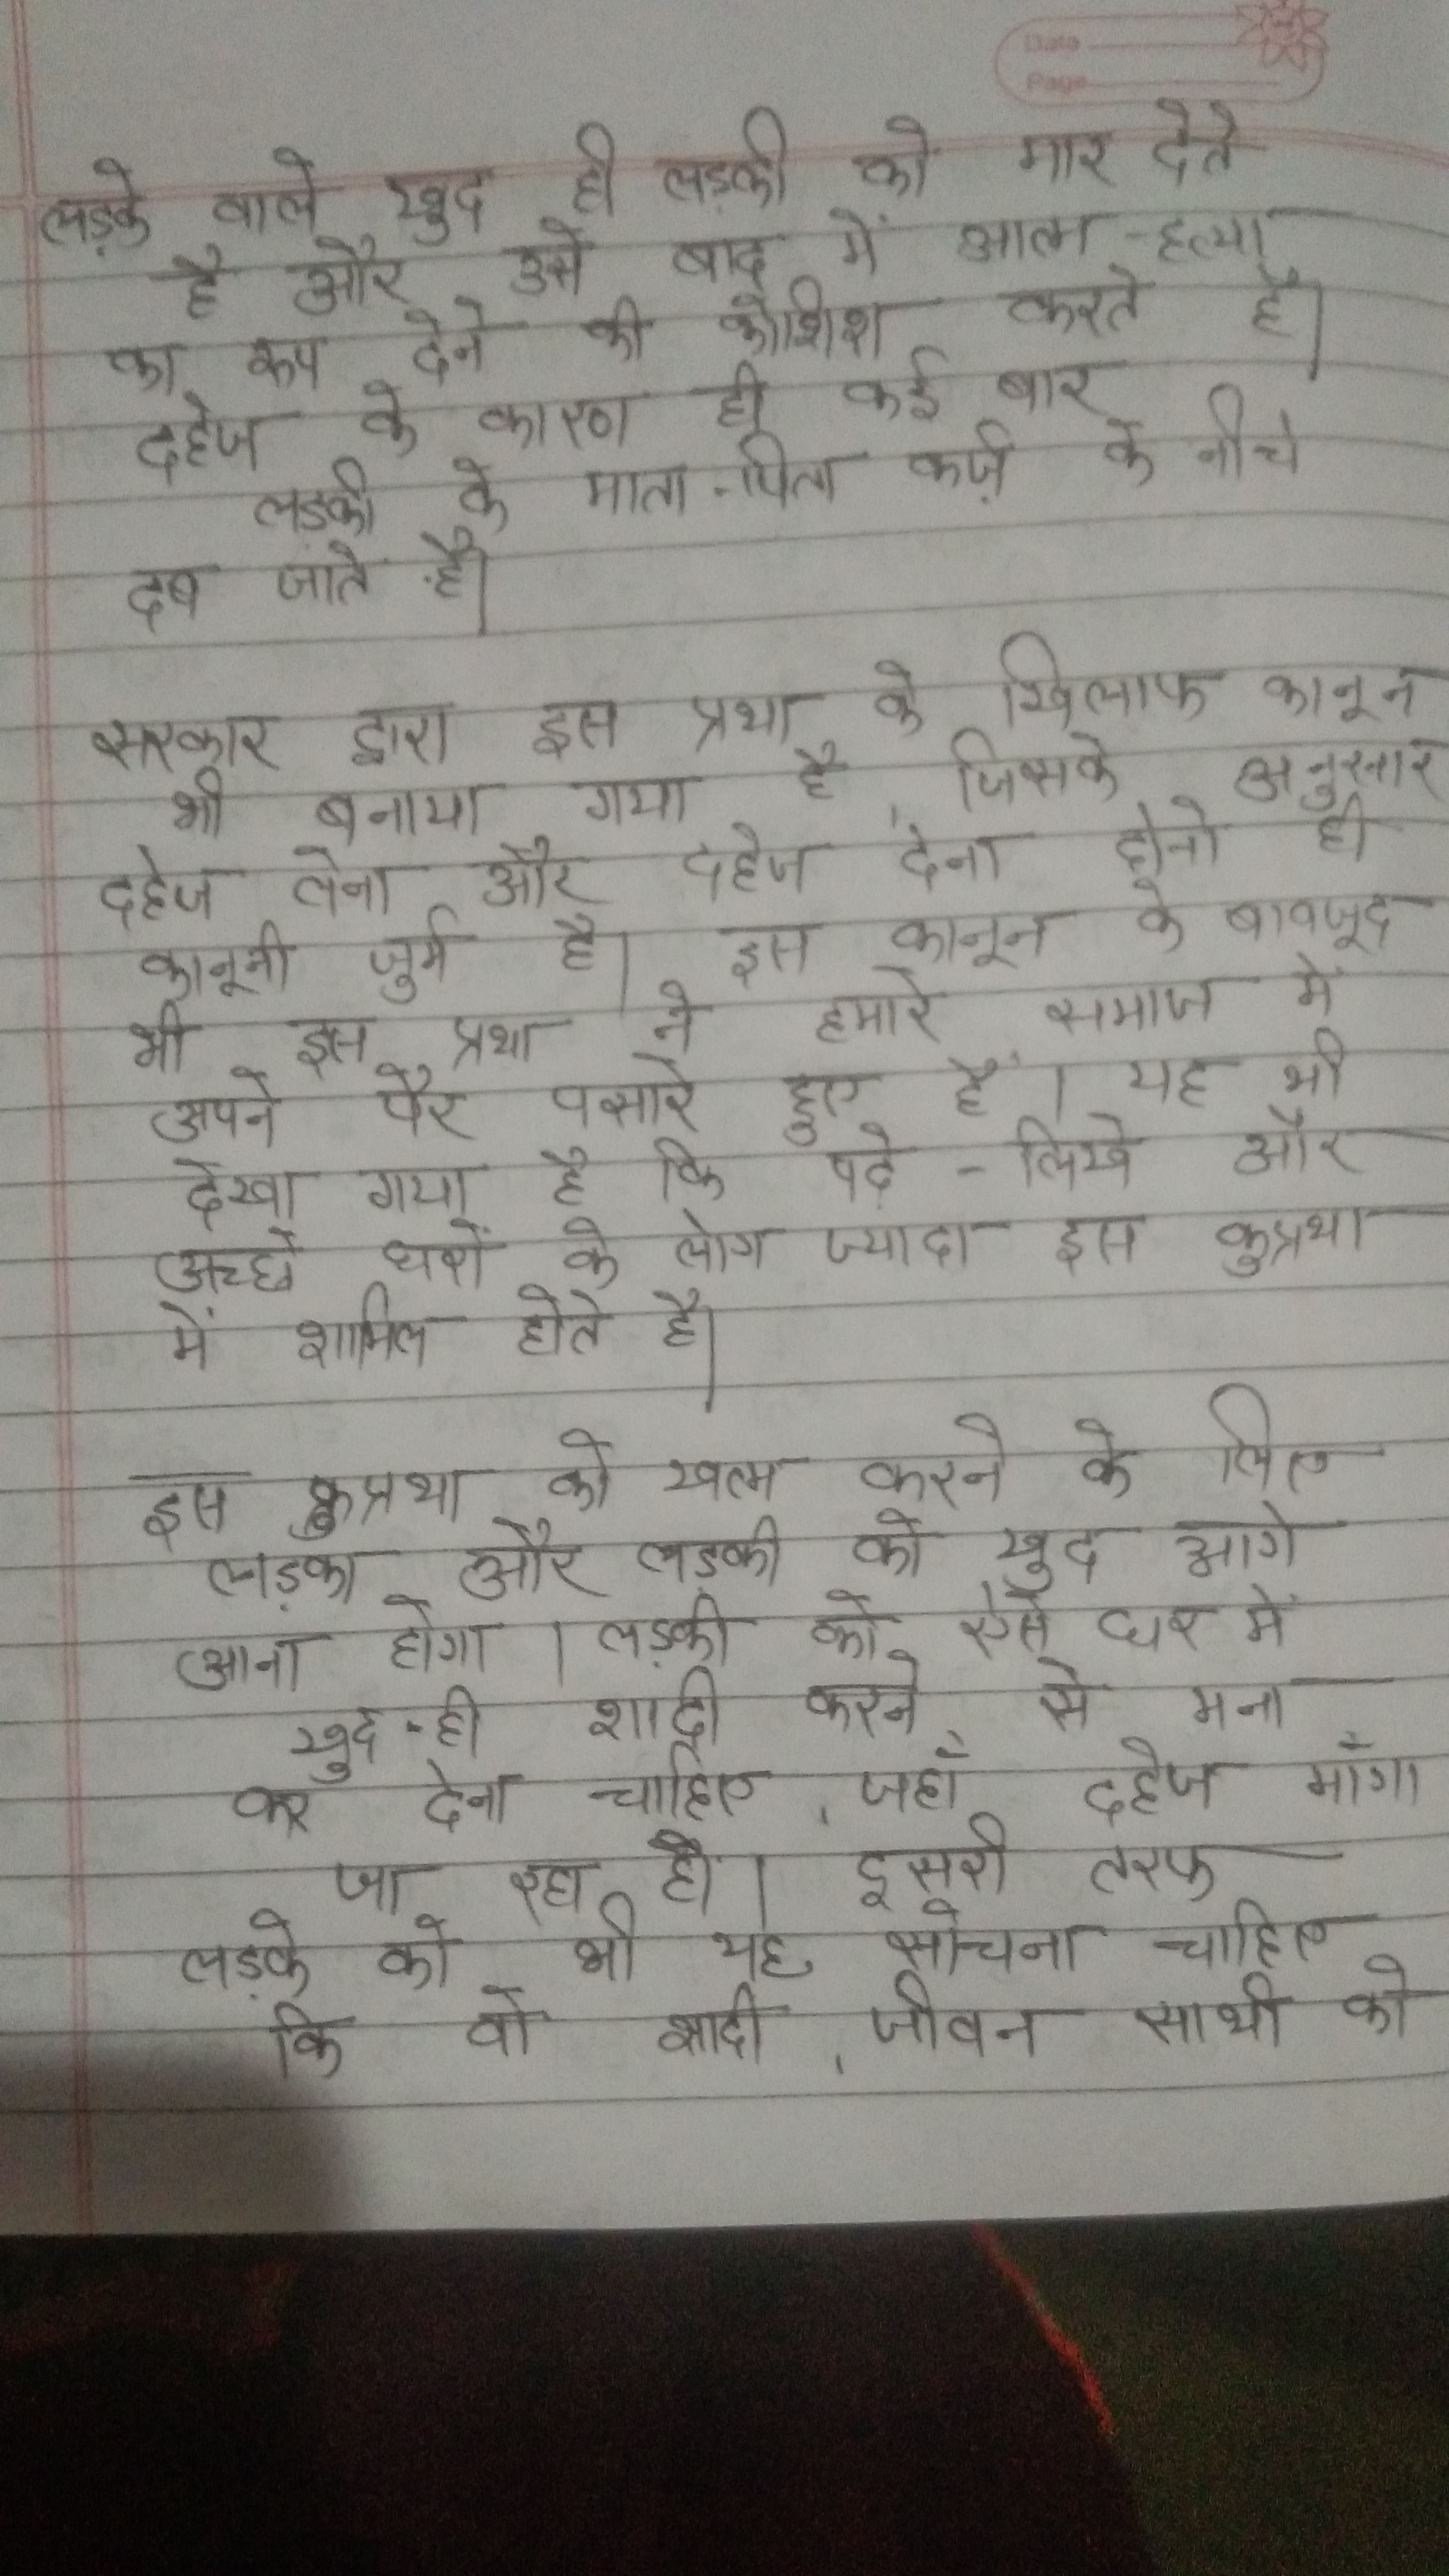 Date
Page
लड़के वाले खुद ही लड़की को मार देते
है और उसे बाद में आत्म-हत्या
का रूप देने की कोशिश करते हैं।
दहेज के कारण ही कई बार
लड़की के माता-पिता कर्ज़ के नीचे
दब जाते हैं।
सरकार द्वारा इस प्रथा के खिलाफ कानून
भी बनाया गया है, जिसके अनुसार
दहेज लेना और दहेज देना दोनो ही
कानूनी जुर्म है। इस कानून के बावजूद
भी इस प्रथा ने हमारे समाज में
अपने पैर पसारे हुए हैं। यह भी
देखा गया है कि पढ़े-लिखे और
अच्छे घरों के लोग ज्यादा इस कुप्रथा
में शामिल होते है।
इस कुप्रथा को खत्म करने के लिए
लड़का और लड़की को खुद आगे
आना होगा। लड़की को ऐसे घर में
खुद-ही शादी करने से मना
कर देना चाहिए, जहाँ दहेज माँगा
जा रहा हो। दूसरी तरफ
लड़के को भी यह सोचना चाहिए
कि वो शादी, जीवन साथी को